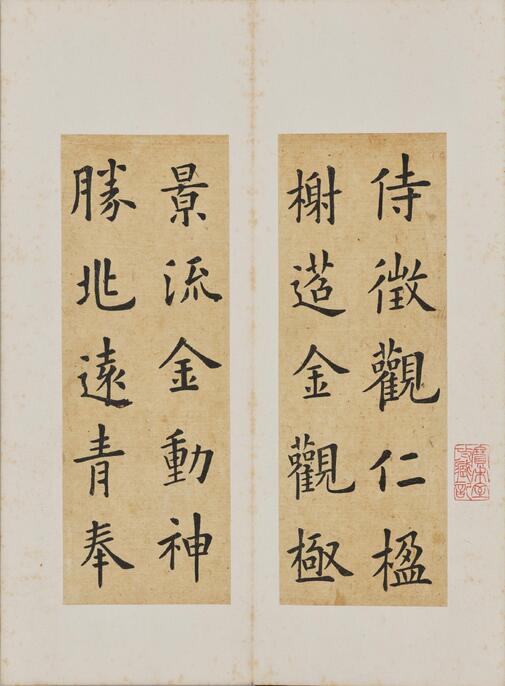 侍徵觀仁楹
榭金觀極
景流金動神
勝兆遠青奉